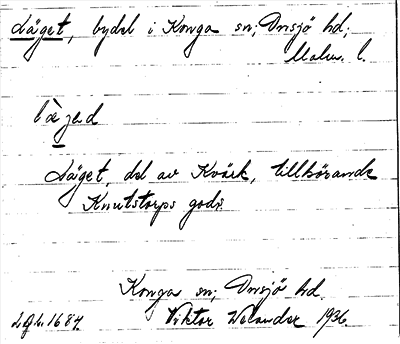 Läget, bydel i Konga sn; Onsjö hd;
Malm. l.
lägəd
Läget, del av Kvärk, tillhörande
Knutstorps gods
Konga sn; Onsjö hd.
Viktor Welander 1936.